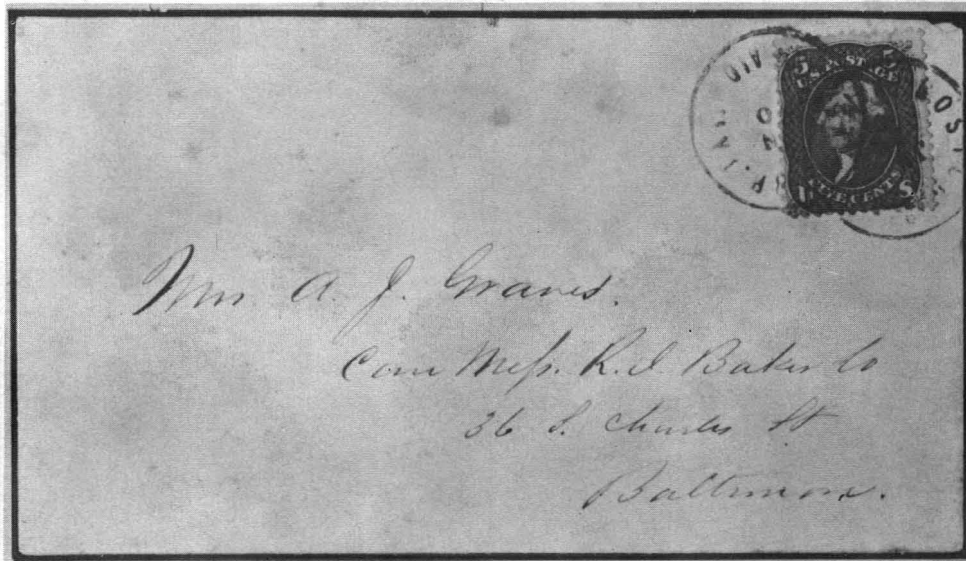 5 5
U.S. POSTAGE
FIVE CENTS
U S
Mr. A. J. Graves.
Care Mess. R. J. Baker Co
36 S. Charles St
Baltimore.